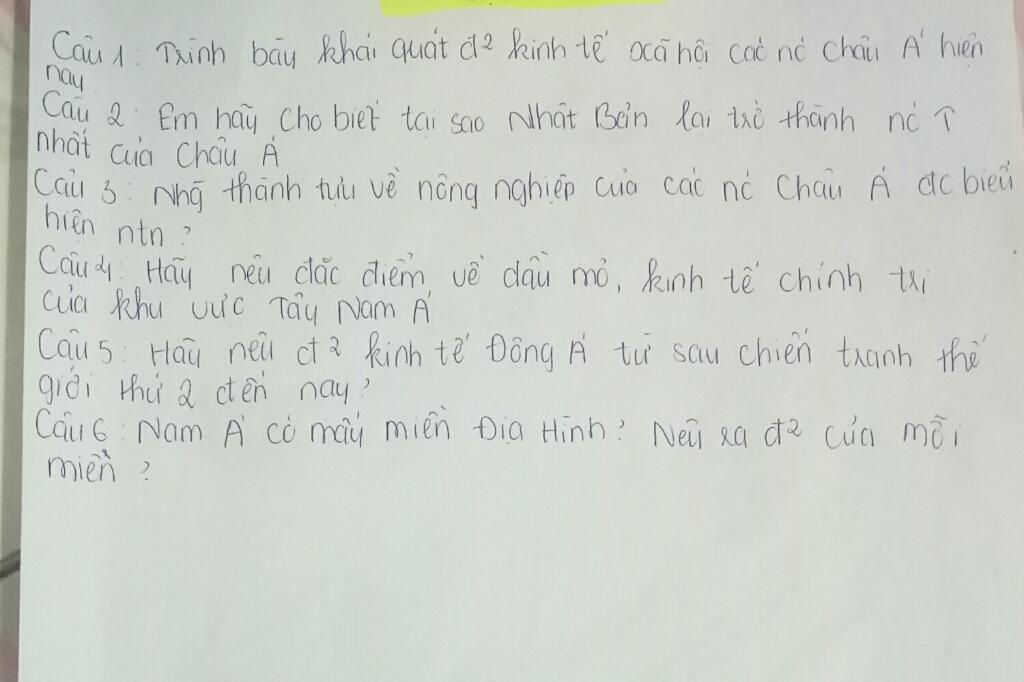 Câu 1: Trình bày khái quát đ² kinh tế xã hội các nc châu Á hiện
nay
Câu 2: Em hãy cho biết tại sao Nhật Bản lại trở thành nc T
nhất của Châu Á
Câu 3: Nhg thành tựu về nông nghiệp của các nc Châu Á đc biểu
hiện ntn?
Câu 4: Hãy nêu đặc điểm về dầu mỏ, kinh tế chính trị
của khu vực Tây Nam Á
Câu 5: Hãy nêu đ² kinh tế Đông Á từ sau chiến tranh thế
giới thứ 2 đến nay?
Câu 6: Nam Á có mấy miền Địa Hình? Nêu ra đ² của mỗi
miền?